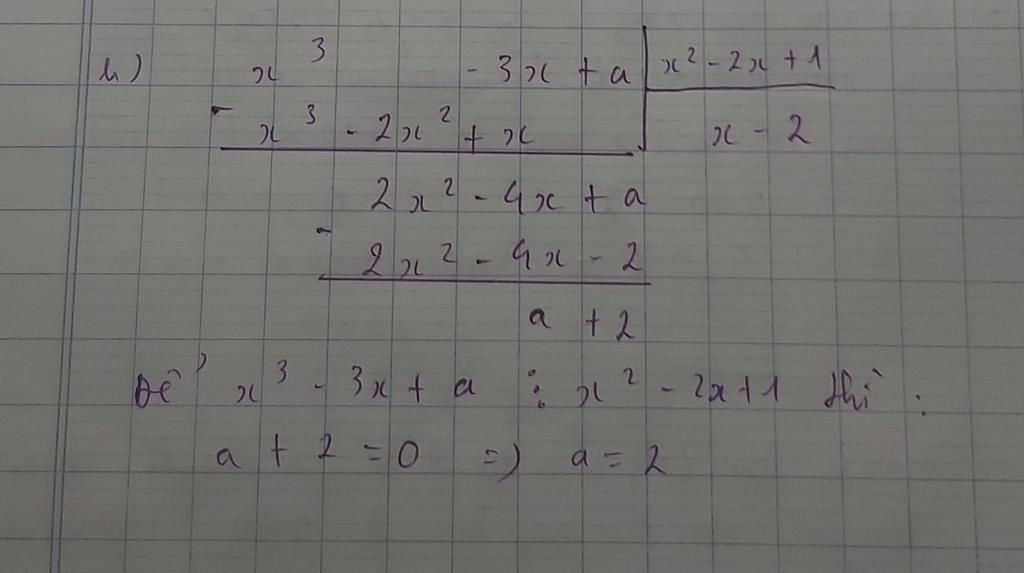 h) x³ - 3x + a | x² - 2x + 1
- x³ - 2x² + x | x - 2
2x² - 4x + a
- 2x² - 4x - 2
a + 2
Để x³ - 3x + a ⋮ x² - 2x + 1 thì :
a + 2 = 0 => a = 2